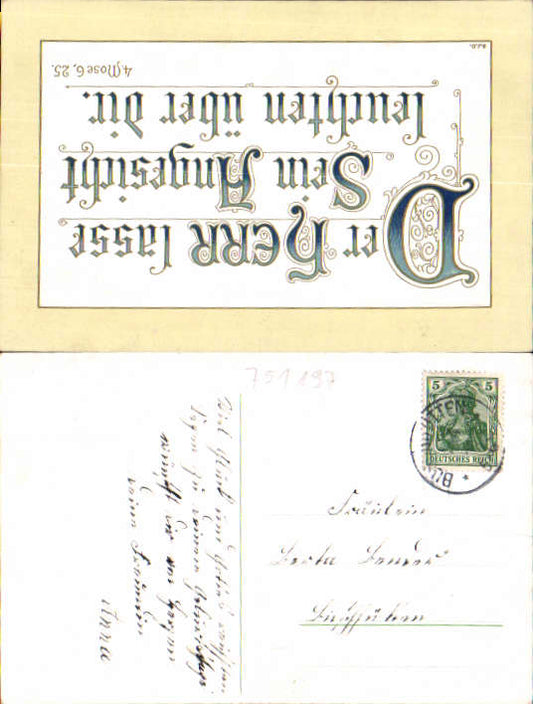 Der HERR lasse
Sein Angesicht
leuchten über dir.
4. Mose 6, 25.
751197
5 5
DEUTSCHES REICH
Fräulein
Berta Bender
Viel Glück und Gottes
Segen zu deinem Geburtstage
wünscht dir von Herzen
deine Freundin
Anna